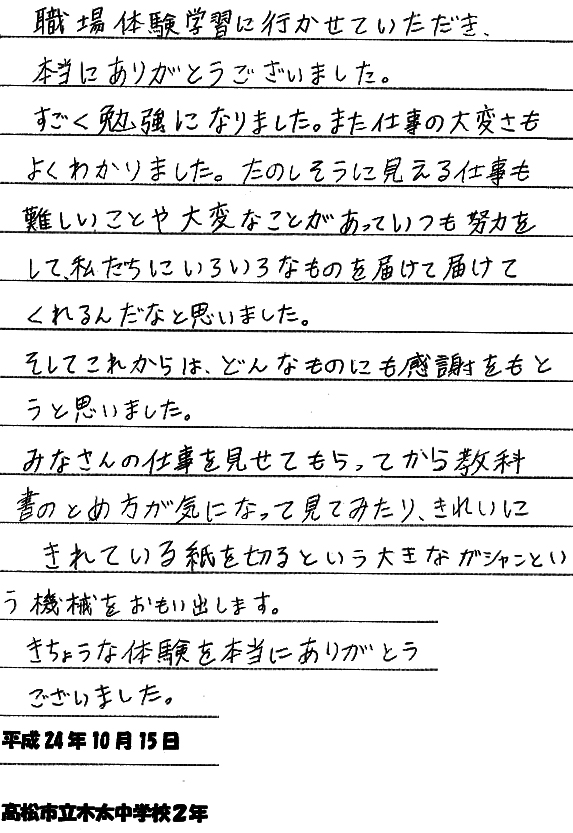 職場体験学習に行かせていただき、
本当にありがとうございました。
すごく勉強になりました。また仕事の大変さも
よくわかりました。たのしそうに見える仕事も
難しいことや大変なことがあっていつも努力を
して、私たちにいろいろなものを届けて届けて
くれるんだなと思いました。
そしてこれからは、どんなものにも感謝をもと
うと思いました。
みなさんの仕事を見せてもらってから教科
書のとめ方が気になって見てみたり、きれいに
きれている紙を切るという大きなガシャンとい
う機械をおもい出します。
きちょうな体験を本当にありがとう
ございました。
平成24年10月15日
高松市立木太中学校2年